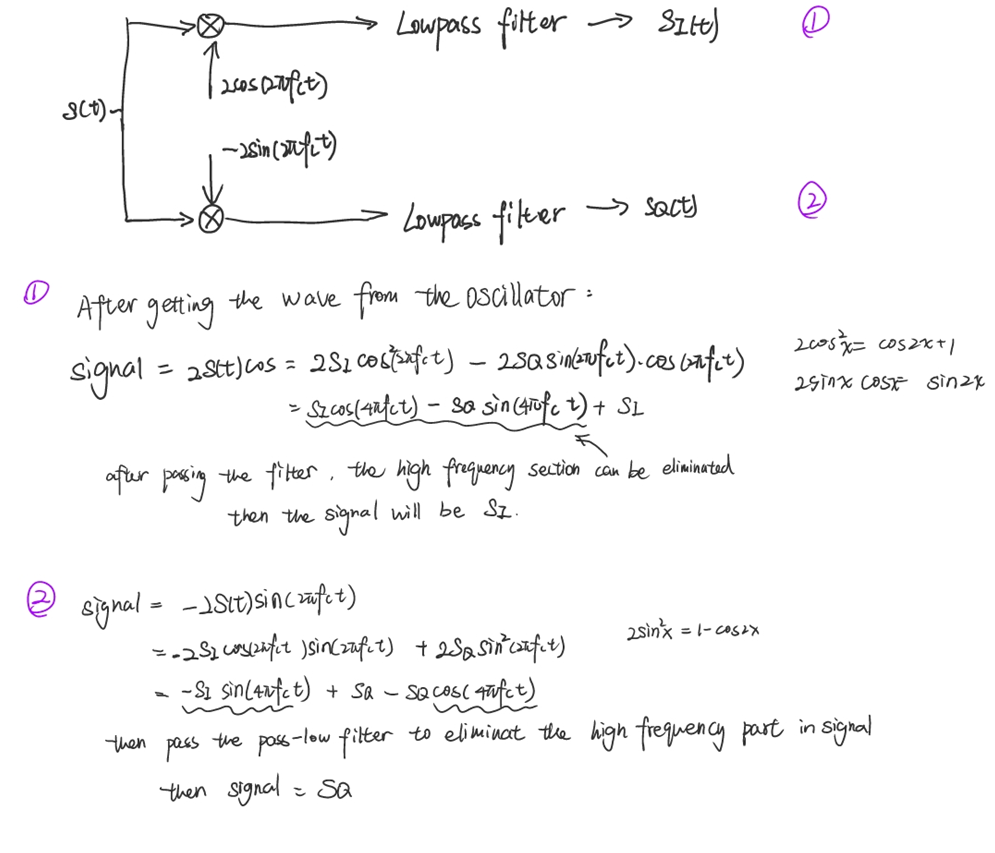 Lowpass filter → SI(t) ①
2cos(2πfct)
S(t)
-2sin(2πfct)
Lowpass filter → SQ(t) ②
① After getting the wave from the oscillator:
signal = 2S(t)cos = 2SI cos²(2πfct) - 2SQ sin(2πfct)·cos(2πfct)
2cos²x = cos2x+1
2sinx cosx= sin2x
= SI cos(4πfct) - SQ sin(4πfc t) + SI
after passing the filter, the high frequency section can be eliminated
then the signal will be SI.
② signal = -2S(t)sin(2πfct)
= -2SI cos(2πfct)sin(2πfct) + 2SQ sin²(2πfct)
2sin²x = 1-cos2x
= -SI sin(4πfct) + SQ - SQ cos(4πfct)
then pass the pass-low filter to eliminat the high frequency part in signal
then signal = SQ